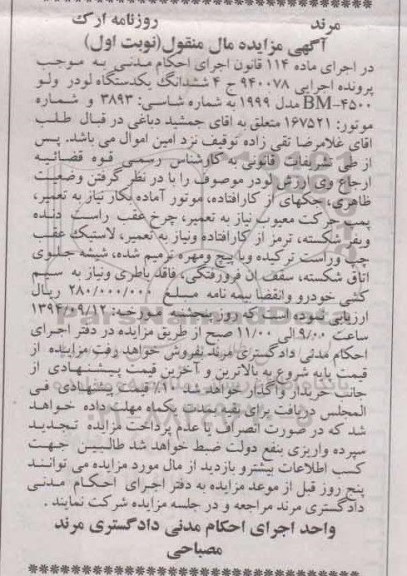 مرند روزنامه ارک
آگهی مزایده مال منقول(نوبت اول)
در اجرای ماده ۱۱۴ قانون اجرای احکام مدنی به موجب
پرونده اجرایی ۹۴۰۰۷۸ ج ۴ ششدانگ یکدستگاه لودر ولو
BM-۴۵۰۰ مدل ۱۹۹۹ به شماره شاسی: ۳۸۹۳ و شماره
موتور: ۱۶۷۵۲۱ متعلق به اقای جمشید دباغی در قبال طلب
اقای غلامرضا تقی زاده توقیف نزد امین اموال می باشد. پس
از طی تشریفات قانونی به کارشناس رسمی قوه قضائیه
ارجاع وی ارزش لودر موصوف را با در نظر گرفتن وضعیت
ظاهری، جکهای از کارافتاده، موتور آماده بکار نیاز به تعمیر،
پمپ حرکت معیوب نیاز به تعمیر، چرخ عقب راست دنده
ویفر شکسته، ترمز از کارافتاده ونیاز به تعمیر، لاستیک عقب
چپ وراست ترکیده وبا پیچ ومهره ترمیم شده، شیشه جلوی
اتاق شکسته، سقف ان فرورفتگی، فاقد باطری ونیاز به سیم
کشی خودرو وانقضا بیمه نامه مبلغ ۲۸۰/۰۰۰/۰۰۰ ریال
ارزیابی نموده است که روز پنجشنبه مورخه: ۱۳۹۴/۰۹/۱۲
ساعت ۹/۰۰ الی ۱۱/۰۰ صبح از طریق مزایده در دفتر اجرای
احکام مدنی دادگستری مرند بفروش خواهد رفت مزایده از
قیمت پایه شروع به بالاترین و آخرین قیمت پیشنهادی از
جانب خریدار واگذار خواهد شد ۱۰٪ قیمت پیشنهادی فی
المجلس دریافت برای بقیه بمدت یکماه مهلت داده خواهد
شد که در صورت انصراف یا عدم پرداخت مزایده تجدید
سپرده واریزی بنفع دولت ضبط خواهد شد طالبین جهت
کسب اطلاعات بیشترو بازدید از مال مورد مزایده می توانند
پنج روز قبل از موعد مزایده به دفتر اجرای احکام مدنی
دادگستری مرند مراجعه و در جلسه مزایده شرکت نمایند .
واحد اجرای احکام مدنی دادگستری مرند
مصباحی